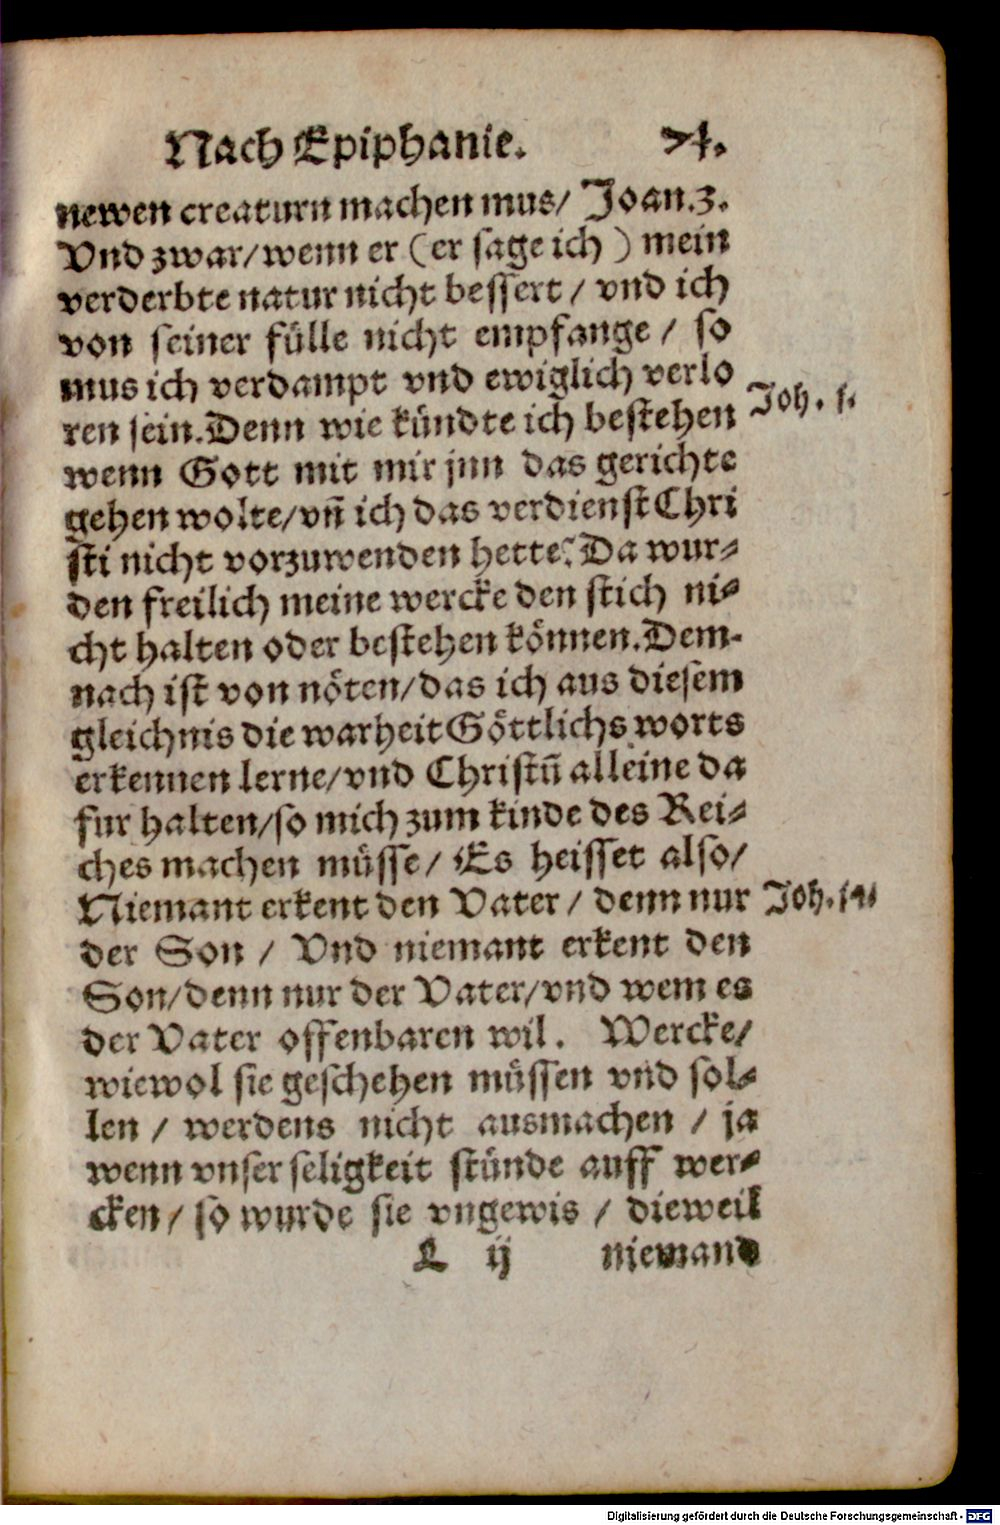 Nach Epiphanie. 74.
newen creaturn machen mus/ Joan.3.
Vnd zwar/wenn er (er sage ich) mein
verderbte natur nicht bessert/ vnd ich
von seiner fülle nicht empfange/ so
mus ich verdampt vnd ewiglich verlo
Joh. 1.
ren sein.Denn wie kündte ich bestehen
wenn Gott mit mir jnn das gerichte
gehen wolte/vñ ich das verdienst Chri
sti nicht vorzuwenden hette? Da wur⸗
den freilich meine wercke den stich ni⸗
cht halten oder bestehen können.Dem⸗
nach ist von nöten/das ich aus diesem
gleichnis die warheit Göttlichs worts
erkennen lerne/vnd Christũ alleine da
fur halten/so mich zum kinde des Rei⸗
ches machen müsse/ Es heisset also/
Niemant erkent den Vater/ denn nur Joh. 14.
der Son / Vnd niemant erkent den
Son/denn nur der Vater/vnd wem es
der Vater offenbaren wil. Wercke/
wiewol sie geschehen müssen vnd sol⸗
len / werdens nicht ausmachen / ja
wenn vnser seligkeit stünde auff wer⸗
cken/ so wurde sie vngewis / dieweil
L ij niemand
Digitalisierung gefördert durch die Deutsche Forschungsgemeinschaft - DFG